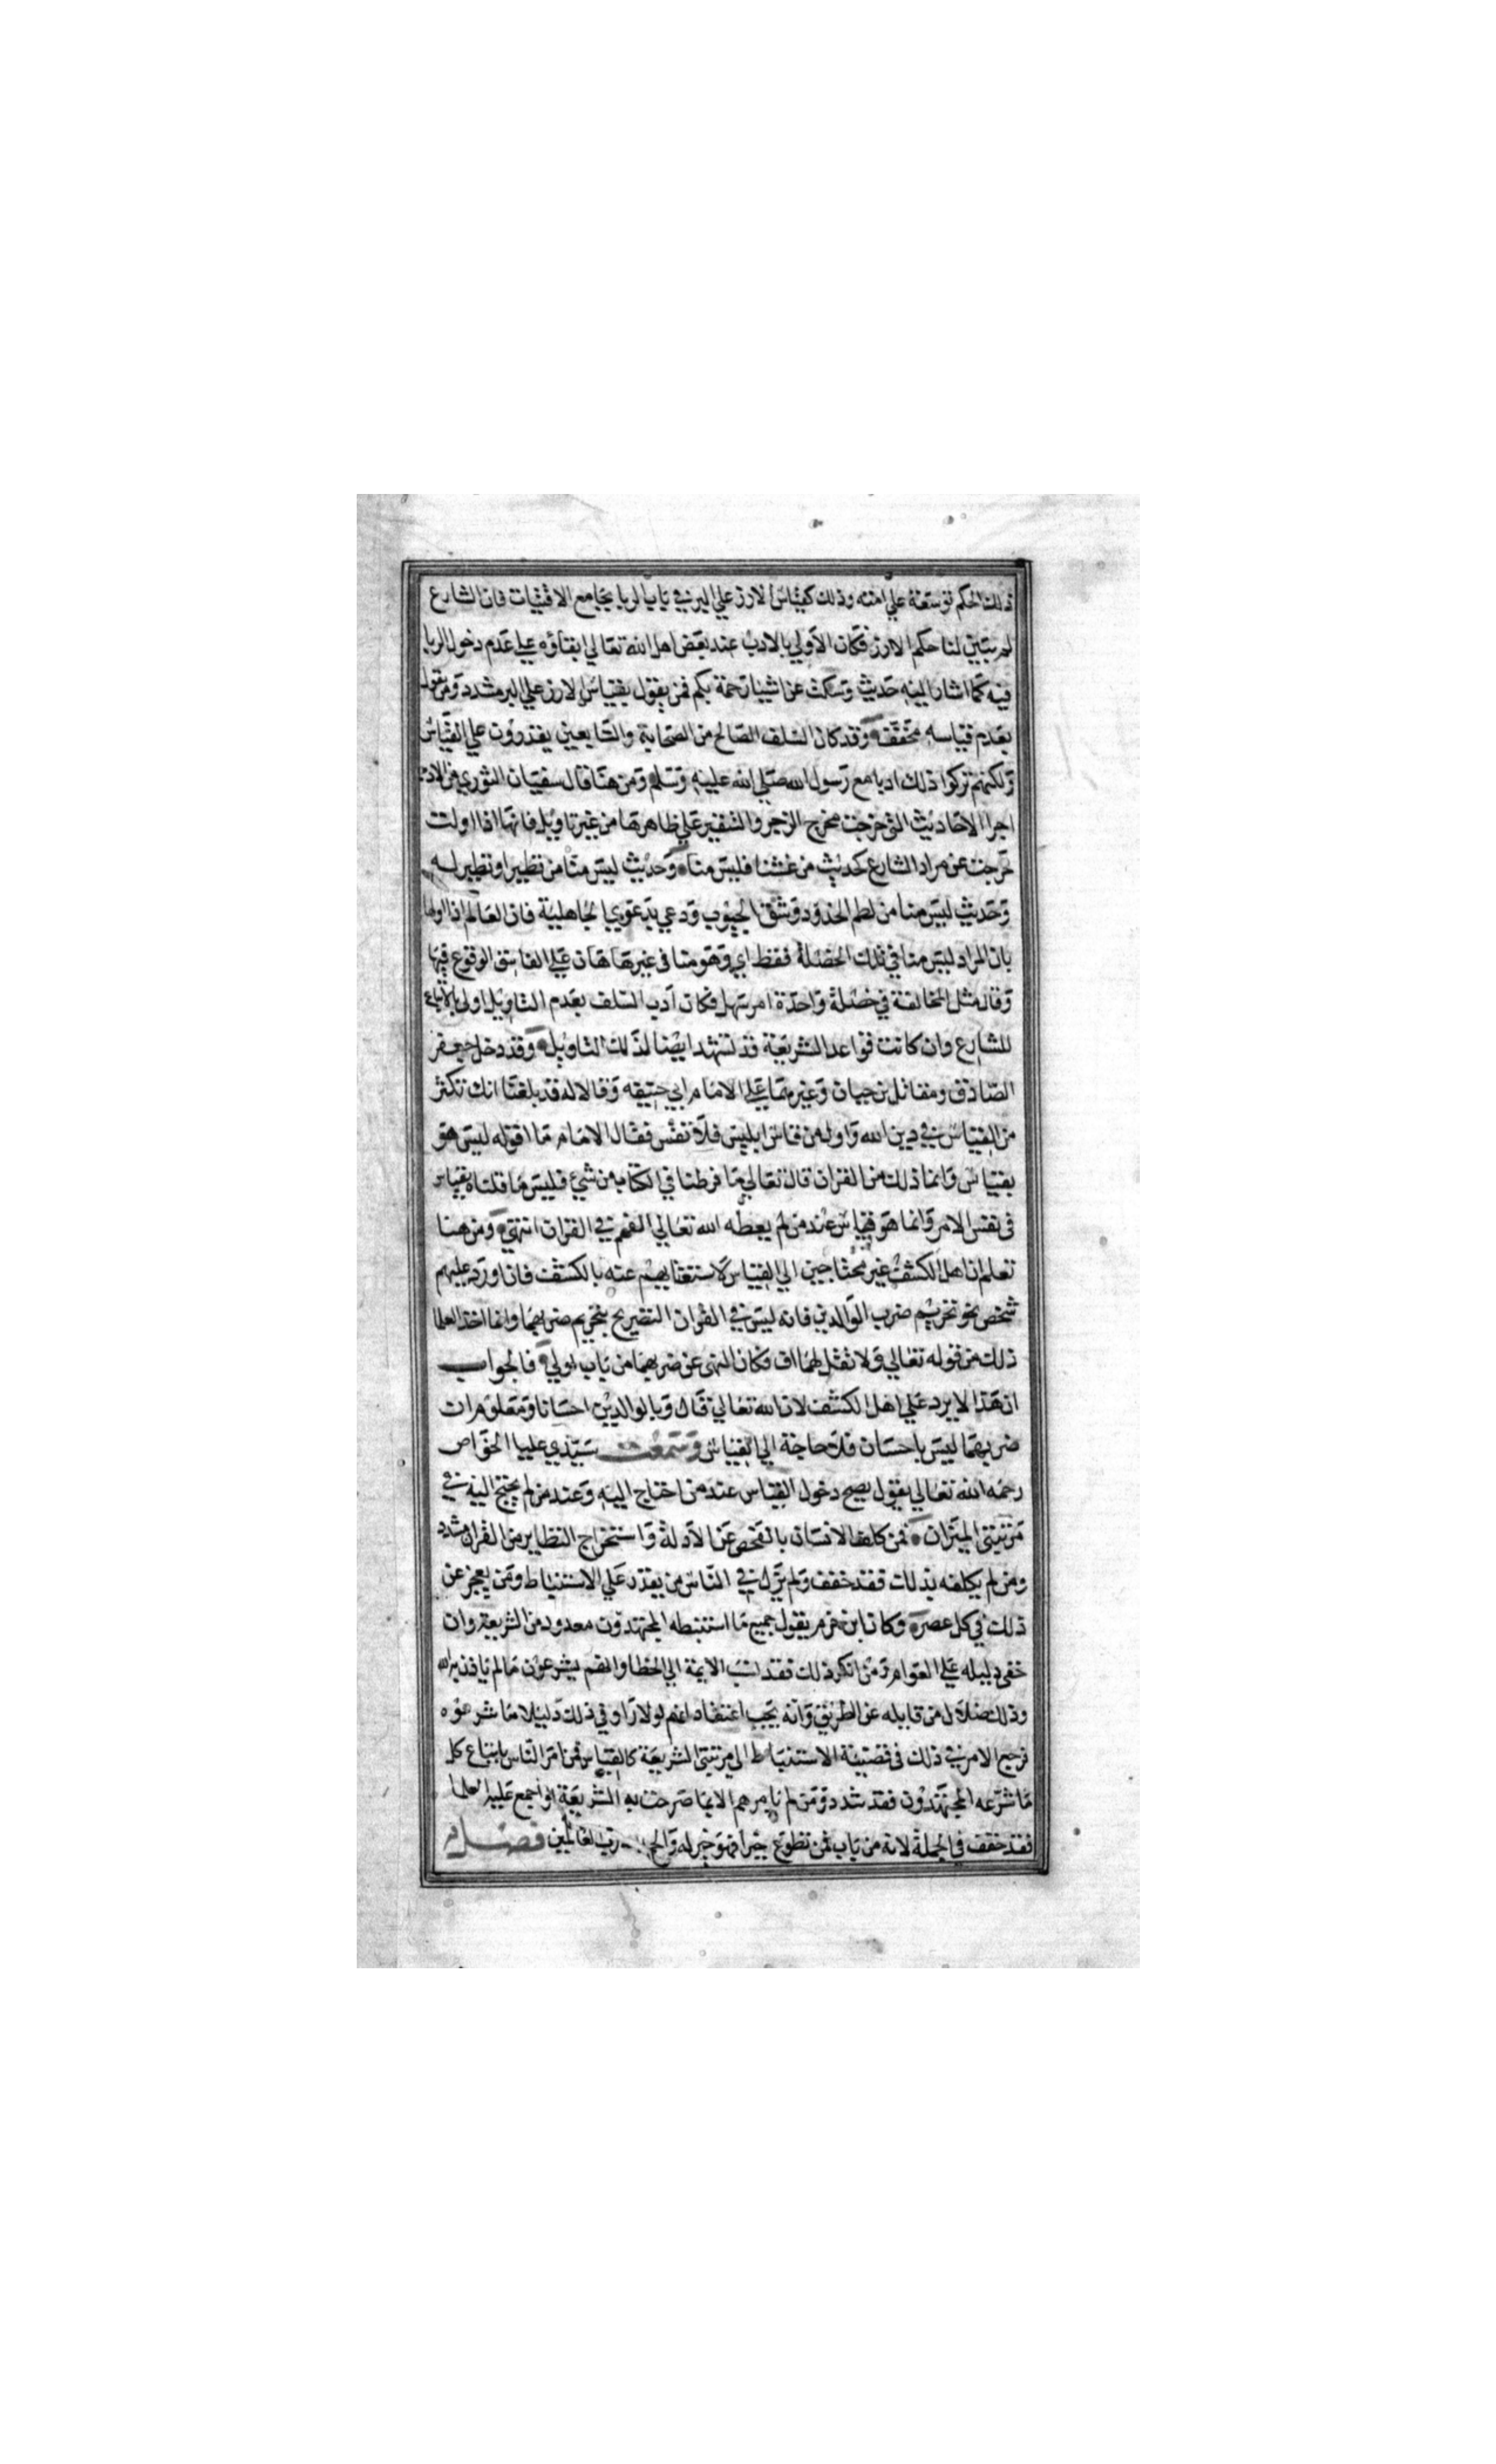 ذلك الحكم توسعة علي امته وذلك كقياس الارز علي البر في باب الربا بجامع الاقتيات فان الشارع
لم يبين لنا حكم الارز فكان الاولي بالادب عند بعض اهل الله تعالي ابقاؤه علي عدم دخول الربا
فيه كما اشار اليه حديث وسكت عن اشيا رحمة بكم فمن يقول بقياس الارز علي البر مشدد ومن يقول
بعدم قياسه مخفف وقد كان السلف الصالح من الصحابة والتابعين يقدرون علي القياس
ولكنهم تركوا ذلك ادبا مع رسول الله صلي الله عليه وسلم ومن هنا قال سفيان الثوري من الادب
اجرا الاحاديث التي خرجت مخرج الزجر والتنفير علي ظاهرها من غير تاويل فانها اذا اولت
خرجت عن مراد الشارع كحديث من غشنا فليس منا وحديث ليس منا من تطير او تطير له
وحديث ليس منا من لطم الخدود وشق الجيوب ودعي بدعوي الجاهلية فان العالم اذا اولها
بان المراد ليس منا في تلك الخصلة فقط اي وهو منا في غيرها هان علي الفاسق الوقوع فيها
وقال مثل المخالفة في خصلة واحدة امر سهل فكان ادب السلف بعدم التاويل اولي بالاتباع
للشارع وان كانت قواعد الشريعة قد تشهد ايضا لذلك التاويل وقد دخل جعفر
الصادق ومقاتل بن حيان وغيرهما علي الامام ابي حنيفه وقالا له قد بلغنا انك تكثر
من القياس في دين الله واول من قاس ابليس فلا تقس فقال الامام ما اقوله ليس هو
بقياس وانما ذلك من القران قال تعالي ما فرطنا في الكتاب من شيء فليس ما قلناه بقياس
في نفس الامر وانما هو قياس عند من لم يعطه الله تعالي الفهم في القران انتهي ومن هنا
تعلم ان اهل الكشف غير محتاجين الي القياس لاستغنايهم عنه بالكشف فان اورد عليهم
شخص نحو تحريم ضرب الوالدين فانه ليس في القران التصريح بتحريم ضربهما وانما اخذ العلما
ذلك من قوله تعالي ولا تقل لهما اف فكان النهي عن ضربهما من باب اولي فالجواب
ان هذا لا يرد علي اهل الكشف لان الله تعالي قال وبالوالدين احسانا ومعلوم ان
ضربهما ليس باحسان فلا حاجة الي القياس وسمعت سيدي عليا الخواص
رحمه الله تعالي يقول يصح دخول القياس عند من احتاج اليه وعند من لم يحتج اليه في
مرتبتي الميزان فمن كلف الانسان بالفحص عن الادلة واستخراج النظاير من القران مشدد
ومن لم يكلفه بذلك فقد خفف ولم يزل في الناس من يقدر علي الاستنباط ومن يعجز عن
ذلك في كل عصر وكان ابن حزم يقول جميع ما استنبطه المجتهدون معدود من الشريعة وان
خفي دليله علي العوام ومن انكر ذلك فقد نسب الايمة الي الخطا وانهم يشرعون ما لم ياذن به الله
وذلك ضلال من قايله عن الطريق وانه يجب اعتقاد انهم لولا راوا في ذلك دليلا ما شرعوه
فرجع الامر في ذلك في قضيئة الاستنباط الي مرتبتي الشريعة كالقياس فمن امر الناس باتباع كل
ما شرعه المجتهدون فقد شدد ومن لم يامرهم الا بما صرحت به الشريعة او اجمع عليه العلما
فقد خفف في الجملة لانه من باب فمن تطوع خيرا فهو خير له رب العالمين فصل